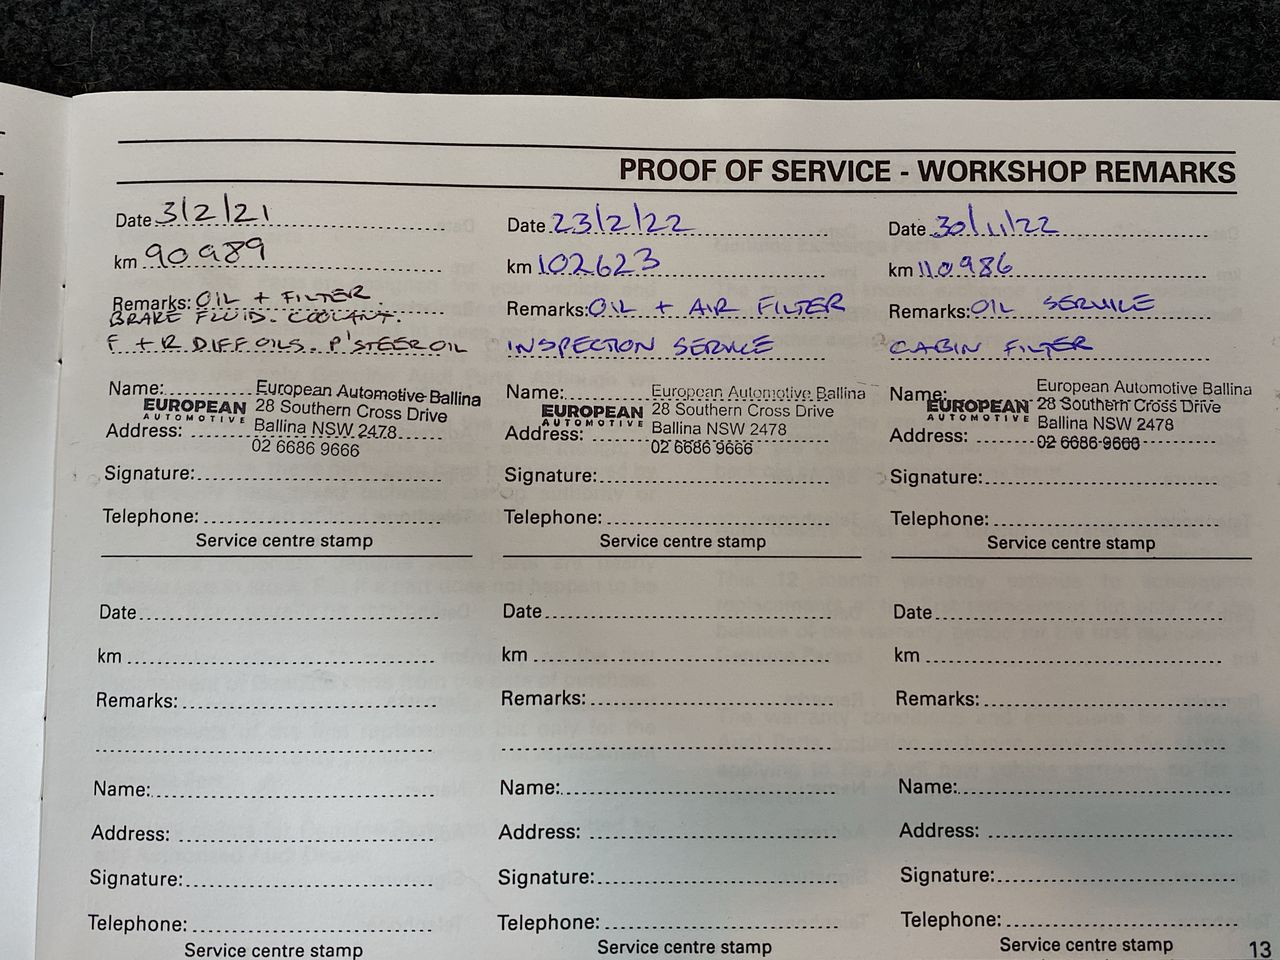 PROOF OF SERVICE - WORKSHOP REMARKS
Date 3/2/21
km 90989
Remarks: OIL + FILTER.
BRAKE FLUID. COOLANT.
F + R DIFF OILS. P'STEER OIL
Name:
Address:
EUROPEAN
AUTOMOTIVE
European Automotive Ballina
28 Southern Cross Drive
Ballina NSW 2478
02 6686 9666
Signature:
Telephone:
Service centre stamp
Date 23/2/22
km 102623
Remarks: OIL + AIR FILTER
INSPECTION SERVICE
Name:
Address:
EUROPEAN
AUTOMOTIVE
European Automotive Ballina
28 Southern Cross Drive
Ballina NSW 2478
02 6686 9666
Signature:
Telephone:
Service centre stamp
Date 30/11/22
km 110986
Remarks: OIL SERVICE
CABIN FILTER
Name:
Address:
EUROPEAN
AUTOMOTIVE
European Automotive Ballina
28 Southern Cross Drive
Ballina NSW 2478
02 6686 9666
Signature:
Telephone:
Service centre stamp
Date
km
Remarks:
Name:
Address:
Signature:
Telephone:
Service centre stamp
Date
km
Remarks:
Name:
Address:
Signature:
Telephone:
Service centre stamp
Date
km
Remarks:
Name:
Address:
Signature:
Telephone:
Service centre stamp
13